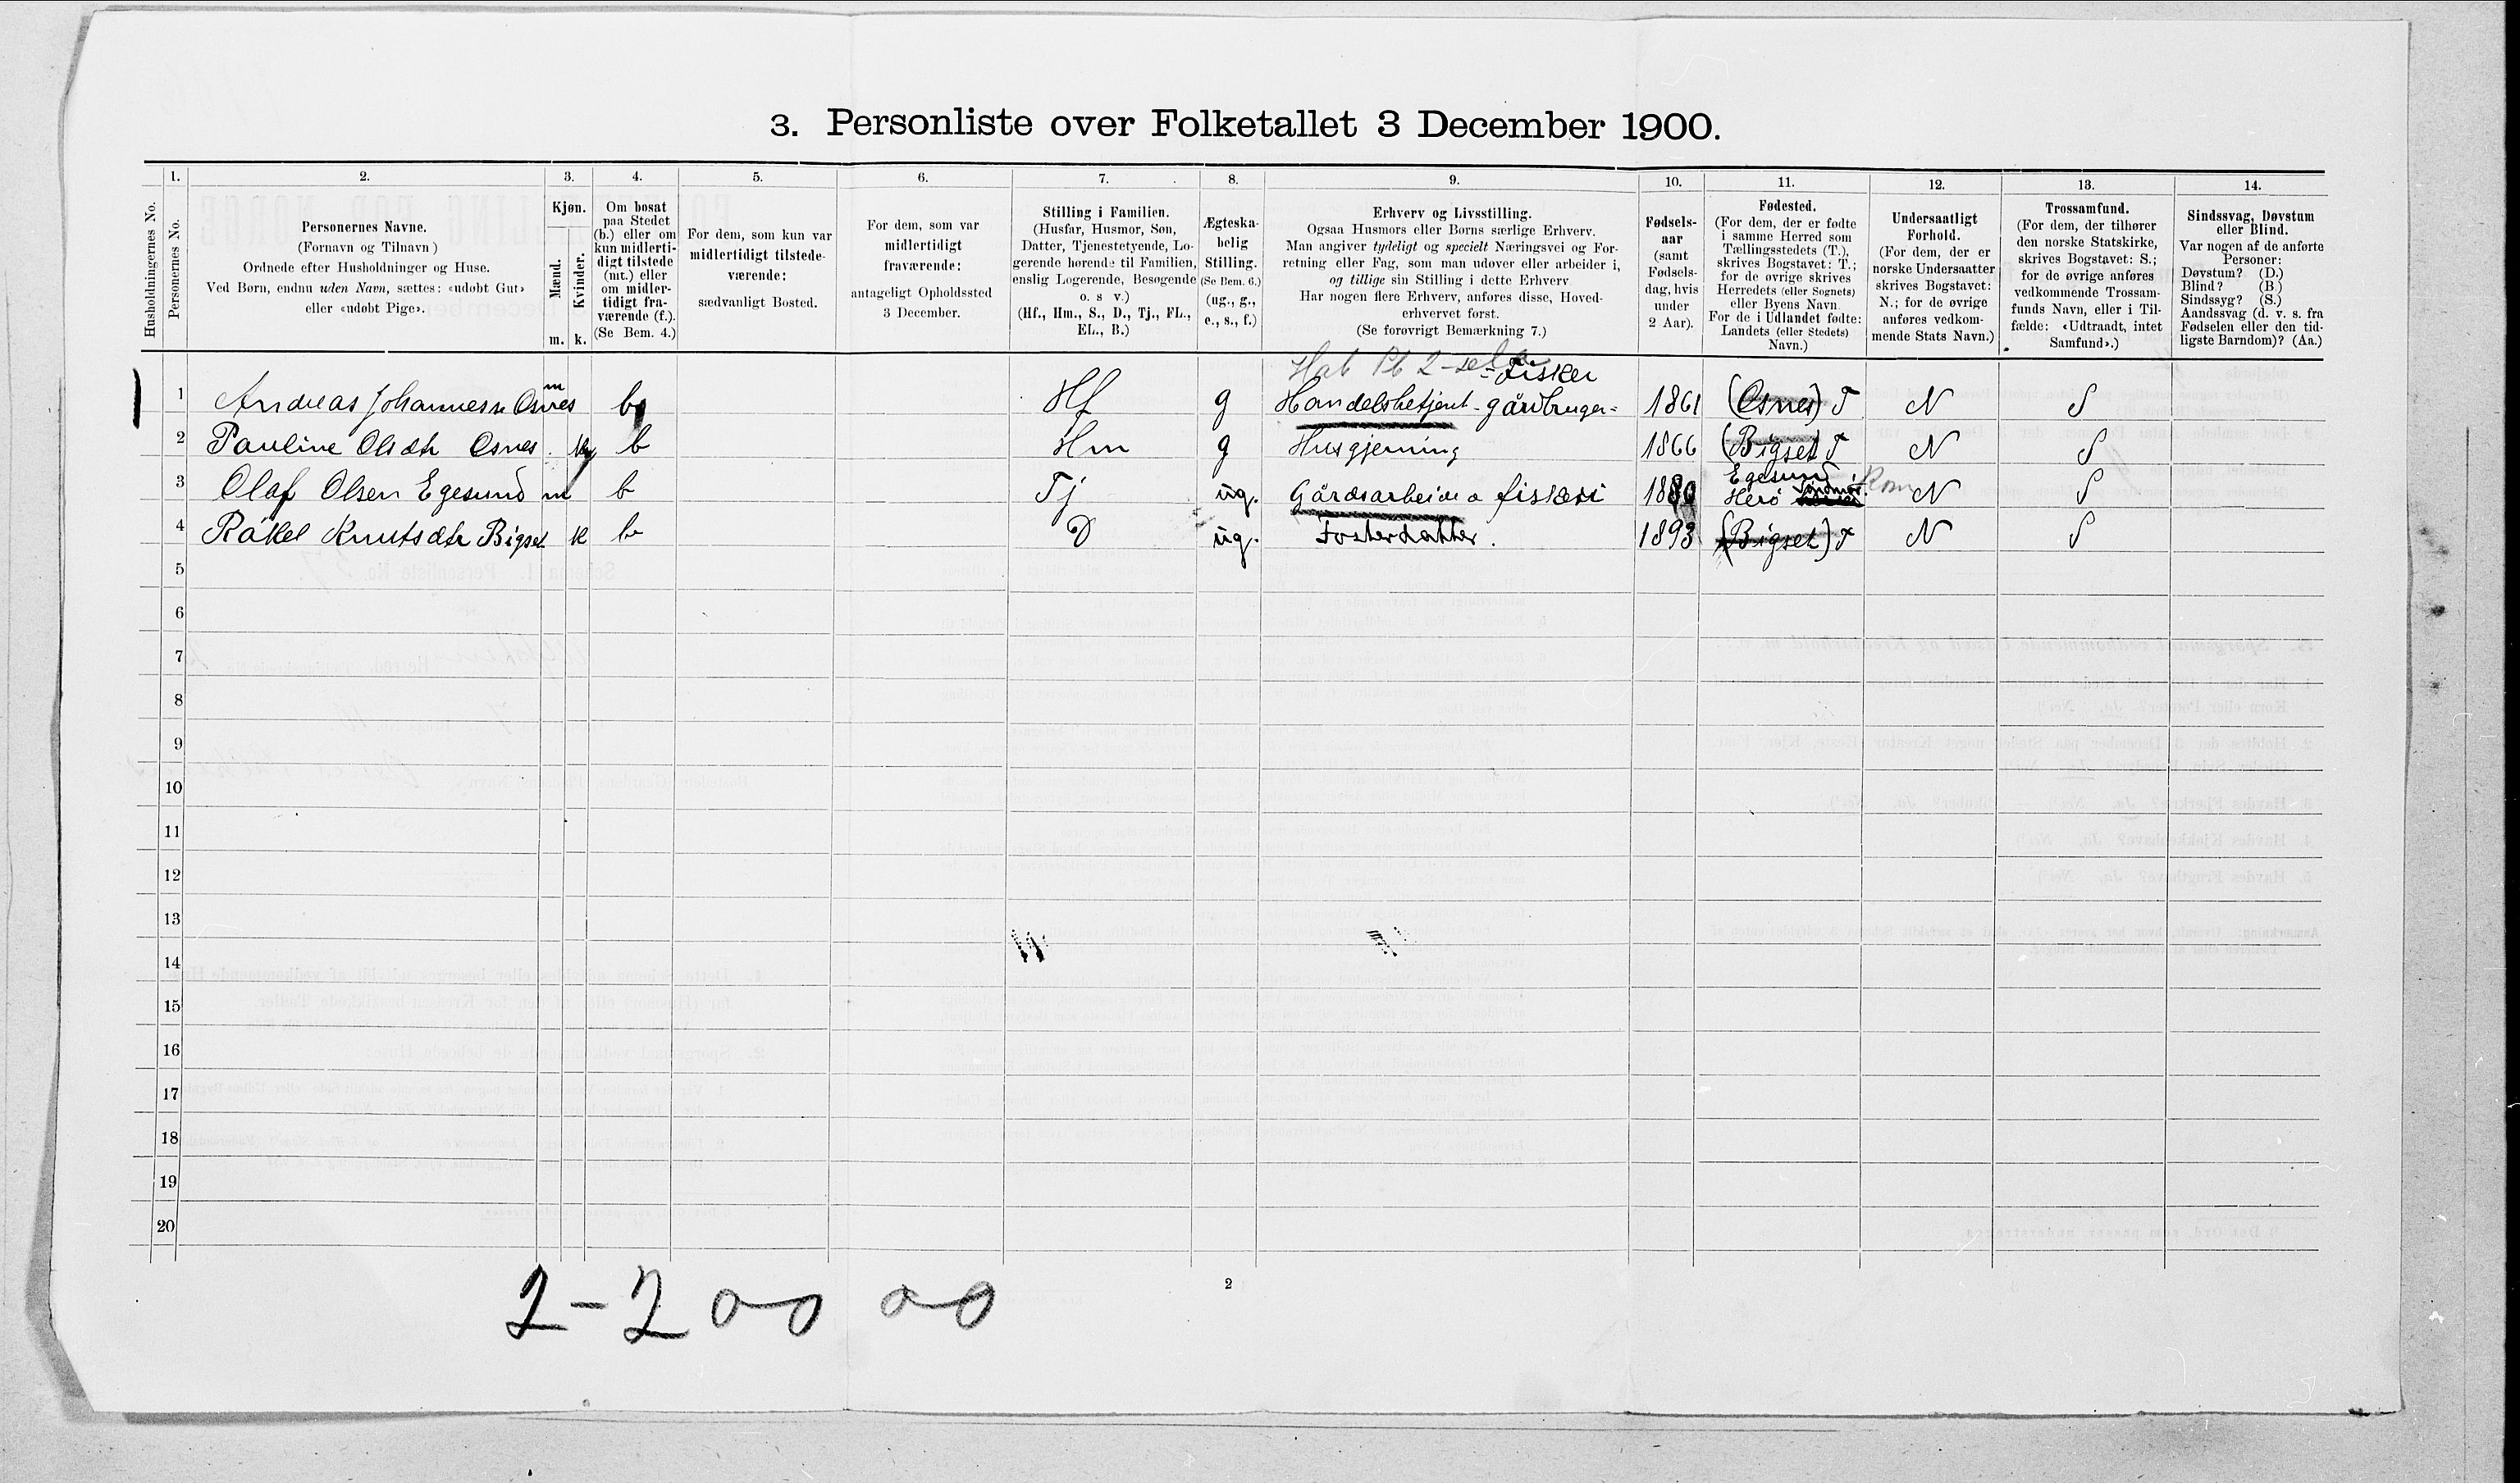 3. Personliste over Folketallet 3 December 1900.
Husholdningernes No.
1.
Personernes No.
2.
Personernes Navne.
(Fornavn og Tilnavn)
Ordnede efter Husholdninger og Huse.
Ved Børn, endnu uden Navn, sættes: «udøbt Gut»
eller «udøbt Pige».
3.
Kjøn.
Mænd.
Kvinder.
m.
k.
4.
Om bosat
paa Stedet
(b.) eller om
kun midlerti-
digt tilstede
(mt.) eller
om midler-
tidigt fra-
værende (f.).
(Se Bem. 4.)
5.
For dem, som kun var
midlertidigt tilstede-
værende:
sædvanligt Bosted.
6.
For dem, som var
midlertidigt
fraværende:
antageligt Opholdssted
3 December.
7.
Stilling i Familien.
(Husfar, Husmor, Søn,
Datter, Tjenestetyende, Lo-
gerende hørende til Familien,
enslig Logerende, Besøgende
o. s v.)
(Hf., Hm., S., D., Tj., FL.,
EL., B.)
8.
Ægteska-
belig
Stilling.
(Se Bem. 6.)
(ug., g.,
e., s., f.)
9.
Erhverv og Livsstilling.
Ogsaa Husmors eller Børns særlige Erhverv.
Man angiver tydeligt og specielt Næringsvei og For-
retning eller Fag, som man udøver eller arbeider i,
og tillige sin Stilling i dette Erhverv
Har nogen flere Erhverv, anføres disse, Hoved-
erhvervet først.
(Se forøvrigt Bemærkning 7.)
10.
Fødsels-
aar
(samt
Fødsels-
dag, hvis
under
2 Aar).
11.
Fødested.
(For dem, der er fødte
i samme Herred som
Tællingsstedets (T.),
skrives Bogstavet: T.;
for de øvrige skrives
Herredets (eller Sognets)
eller Byens Navn.
For de i Udlandet fødte:
Landets (eller Stedets)
Navn.)
12.
Undersaatligt
Forhold.
(For dem, der er
norske Undersaatter
skrives Bogstavet:
N.; for de øvrige
anføres vedkom-
mende Stats Navn.)
13.
Trossamfund.
(For dem, der tilhører
den norske Statskirke,
skrives Bogstavet: S.;
for de øvrige anføres
vedkommende Trossam-
funds Navn, eller i Til-
fælde: «Udtraadt, intet
Samfund».)
14.
Sindssvag, Døvstum
eller Blind.
Var nogen af de anførte
Personer:
Døvstum? (D.)
Blind? (B.)
Sindssyg? (S.)
Aandssvag (d. v. s. fra
Fødselen eller den tid-
ligste Barndom)? (Aa.)
- fisker
1 Andreas Johannesen Osnes m b Hf g Handelsbetjent - gårdbruger - 1861 (Osnes) T N S
2 Pauline Olsdtr Osnes. k b Hm g Husgjerning 1866 (Bigset) T N S
3 Olaf Olsen Egesund m b Tj ug. Gårdsarbeide o fiskeri 1880 Egesund Herö Söndmör. N S
4 Råkel Knutsdtr Bigset k b D ug. Fosterdatter. 1893 (Bigset) T N S
5
6
7
8
9
10
11
12
13
14
15
16
17
18
19
20
2
2 - 2 0-0 0-0